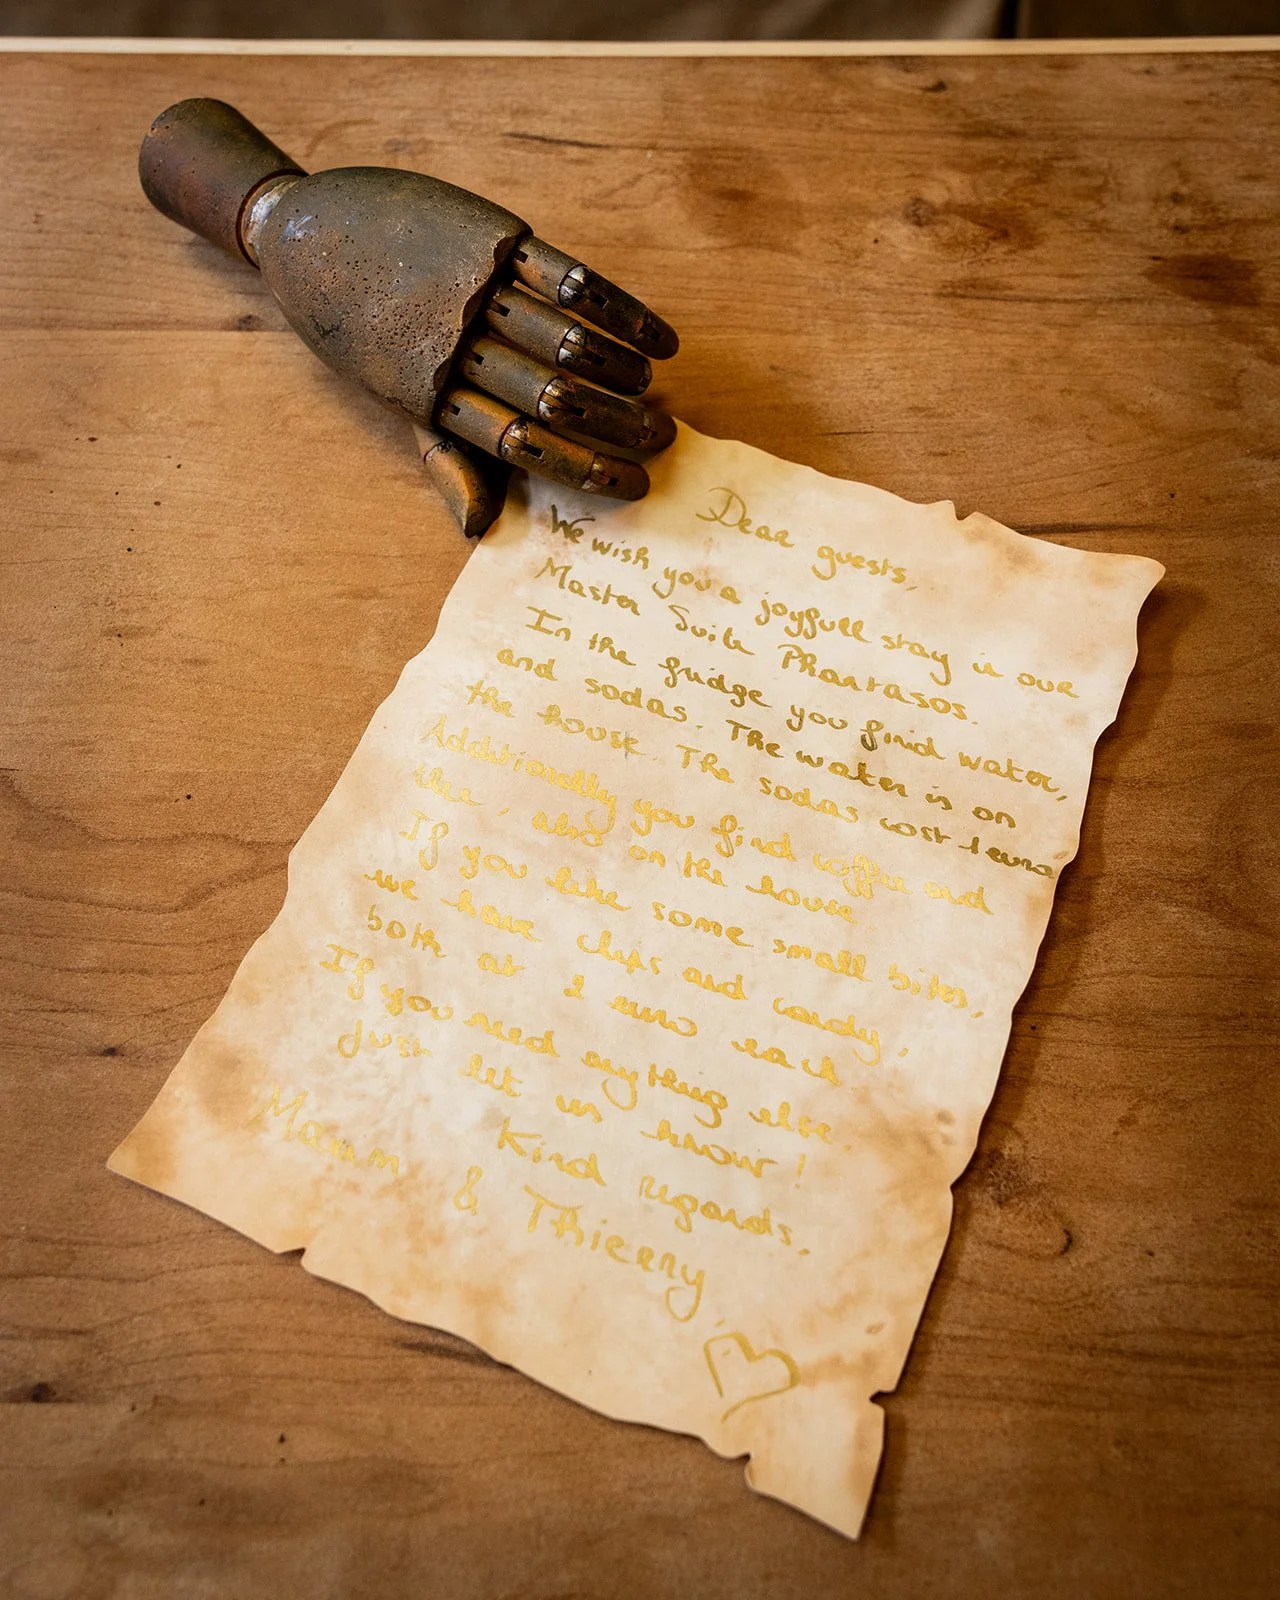 Dear guests,
We wish you a joyfull stay in our
Master Suite Phantasos.
In the fridge you find water,
and sodas. The water is on
the house. The sodas cost 1 euro
Additionally you find coffee and
thee, also on the house
If you like some small bites,
we have chips and candy,
both at 2 euro each
If you need anything else.
Just let us know!
Kind regards,
& Thierry